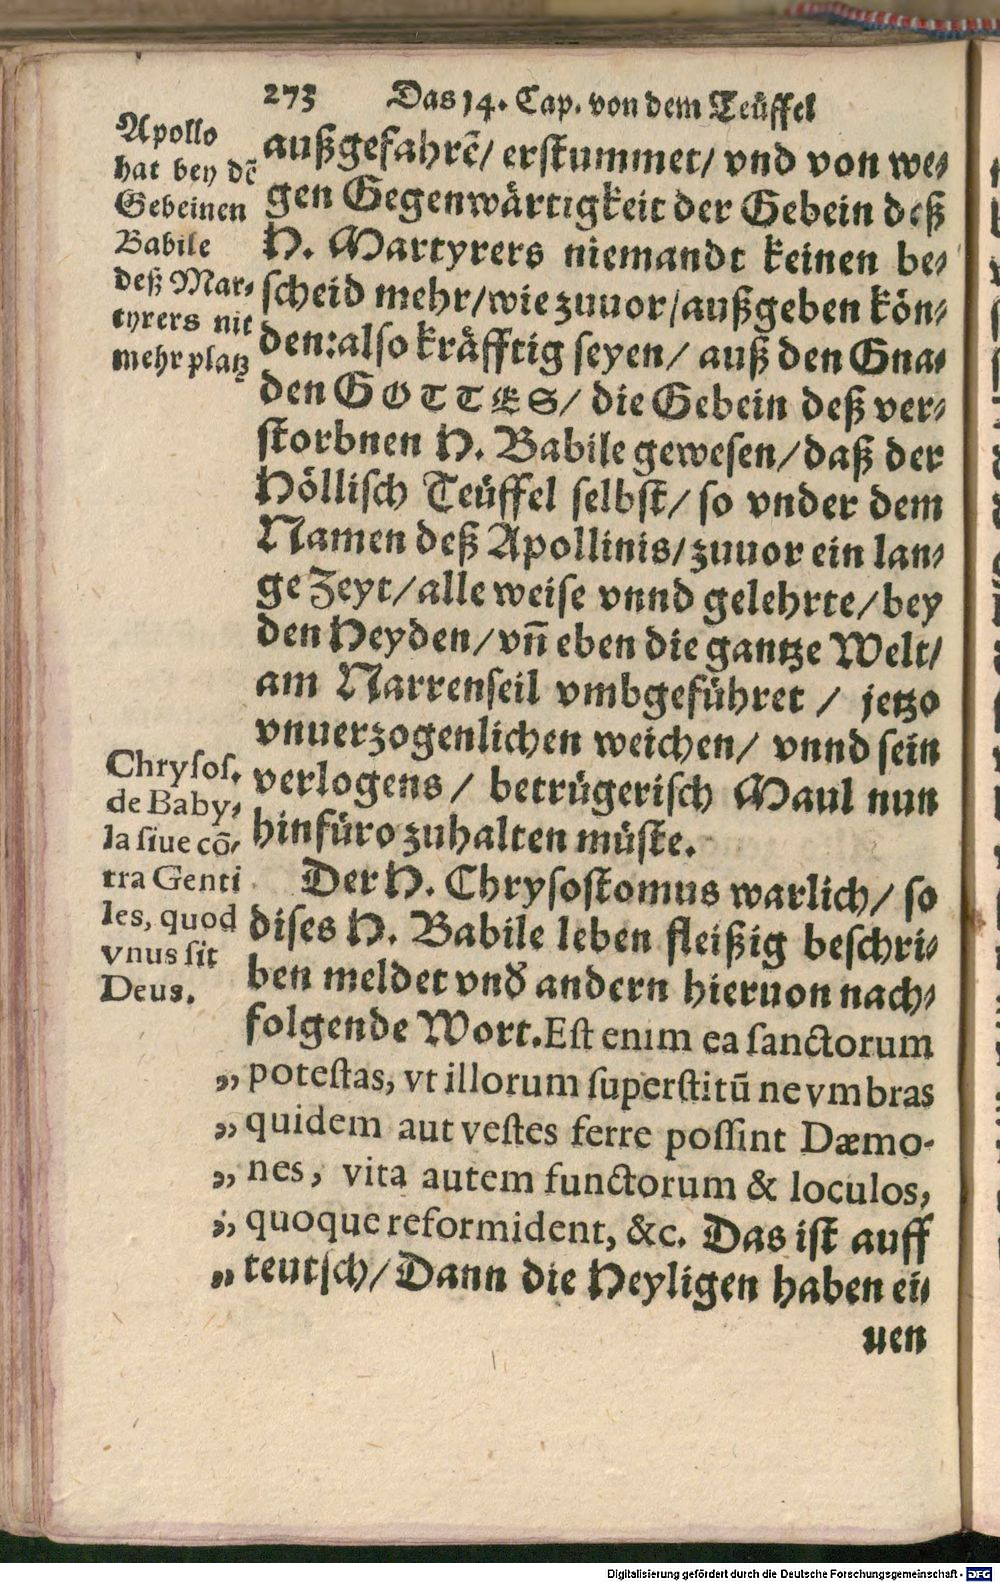 273 Das 14. Cap. von dem Teüffel
Apollo
hat bey dē
Gebeinen
Babile
deß Mar⸗
tyrers nit
mehr platz
außgefahrē/ erstummet/ vnd von we⸗
gen Gegenwärtigkeit der Gebein deß
H. Martyrers niemandt keinen be⸗
scheid mehr/wie zuuor/außgeben kön⸗
den:also kräfftig seyen/ auß den Gna⸗
den GOTTES/ die Gebein deß ver⸗
storbnen H. Babile gewesen/daß der
Höllisch Teüffel selbst/ so vnder dem
Namen deß Apollinis/zuuor ein lan⸗
ge Zeyt/alle weise vnnd gelehrte/bey
den Heyden/vñ eben die gantze Welt/
am Narrenseil vmbgeführet / jetzo
vnuerzogenlichen weichen/ vnnd sein
verlogens/ betrügerisch Maul nun
hinfüro zuhalten müste.
Chrysos.
de Baby⸗
la siue cō⸗
tra Genti
les, quod
vnus sit
Deus.
Der H. Chrysostomus warlich/ so
dises H. Babile leben fleißig beschri⸗
ben meldet vnd̄ andern hieruon nach⸗
folgende Wort. Est enim ea sanctorum
„ potestas, vt illorum superstitū ne vmbras
„ quidem aut vestes ferre possint Dæmo-
„ nes, vita autem functorum & loculos,
„ quoque reformident, &c. Das ist auff
„ teutsch/Dann die Heyligen haben ei⸗
nen
Digitalisierung gefördert durch die Deutsche Forschungsgemeinschaft - DFG